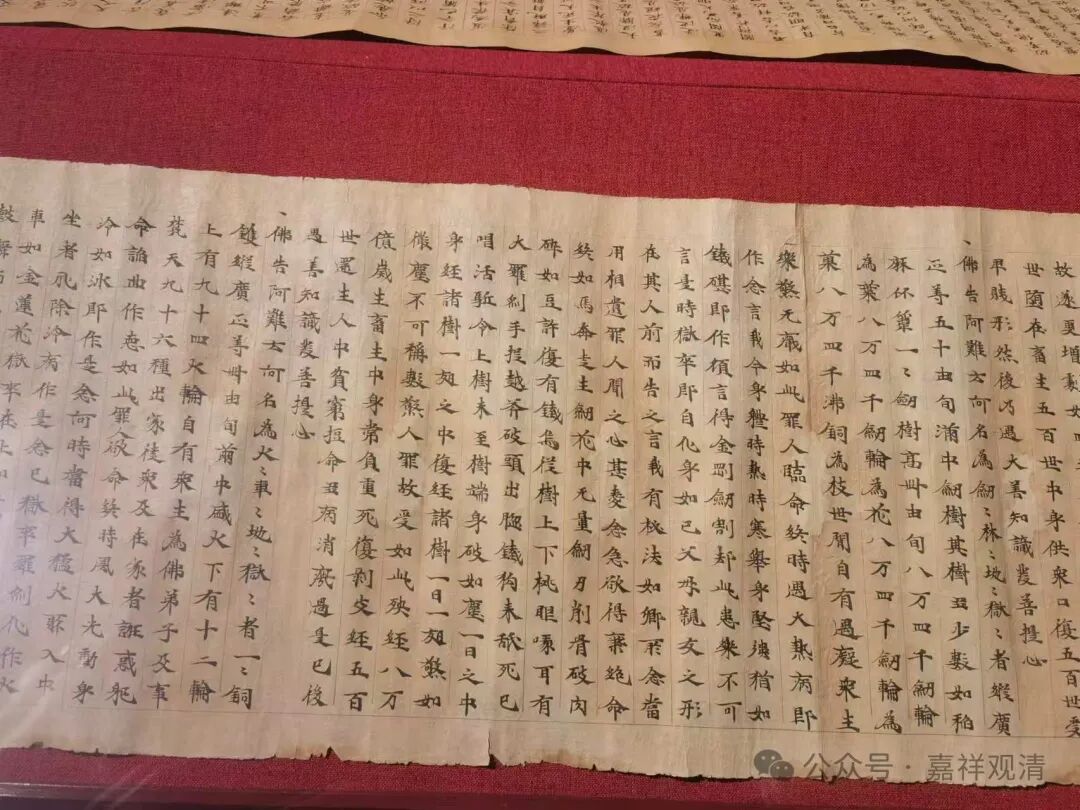 世随在畜生五百世中身供衆口復五百世受
早賤形然後乃遇大善知識發菩提心
佛告阿難云何名為劒〻林〻地〻獄〻者縱廣
正等五十由旬滿中劒樹其樹多少數如稻
麻竹葦一〻劒樹高卌由旬八万四千劒輪
為葉八万四千劒輪為花八万四千劒輪為
菓八万四千沸銅為枝世間自有愚癡衆生
樂煞无厭如此罪人臨命終時遇大熱病即
作念言我今身體時熱時寒舉身堅強猶如
鐵礙即作須言得金剛劒割却此患樂不可
言是時獄卒即自化身如已父母親友之形
在其人前而告之言我有祕法如卿所念當
用相遺罪人聞之心甚愛念急欲得棄絶命
終如馬奔走生劒花中无量劒刃削骨破肉
碎如豆許復有鐵烏從樹上下桃眼啄耳有
大羅刹手提越斧破頭出腦鐵狗来舐死已
唱活駈令上樹未至樹端身破如塵一日之中
身經諸樹一劫之中復經諸樹一日一劫煞如
微塵不可稱數煞人罪故受如此殃經八万
億歲生畜生中身常負重死復剥皮經五百
世還生人中貧窮短命多病消瘦過是已後
遇善知識發菩提心
佛告阿難云何名為火〻車〻地〻獄〻者一〻銅
鑊縱廣正等卌由旬前中盛火下有十二輪
上有九十四火輪自有衆生為佛弟子及事
梵天九十六種出家徒衆及在家者誑惑耶
命諂曲作惡如此罪人欲命終時風大先動身
冷如冰即作是念何時當得大猛火聚入中
坐者永除冷病作是念已獄卒羅刹化作火
車如金蓮花獄卒在上如
公众号·嘉祥观清